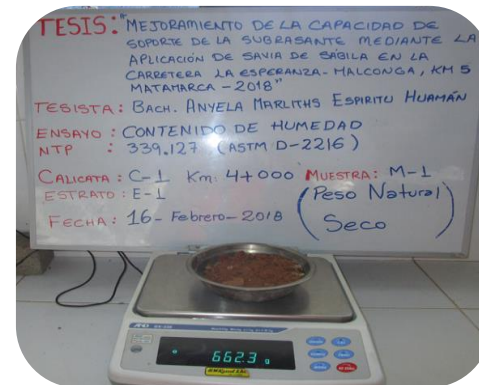 TESIS: "MEJORAMIENTO DE LA CAPACIDAD DE
SOPORTE DE LA SUBRASANTE MEDIANTE LA
APLICACIÓN DE SAVIA DE SÁBILA EN LA
CARRETERA LA ESPERANZA-MALCONGA, KM 5
MATAMARCA - 2018"
TESISTA: BACH. ANYELA MARLITHS ESPIRITU HUAMÁN
ENSAYO: CONTENIDO DE HUMEDAD
NTP : 339.127 (ASTM D-2216)
CALICATA: C-1 Km: 4+000 MUESTRA: M-1
ESTRATO: E-1 (Peso Natural
FECHA: 16-Febrero-2018 Seco)
AND
662.3 g